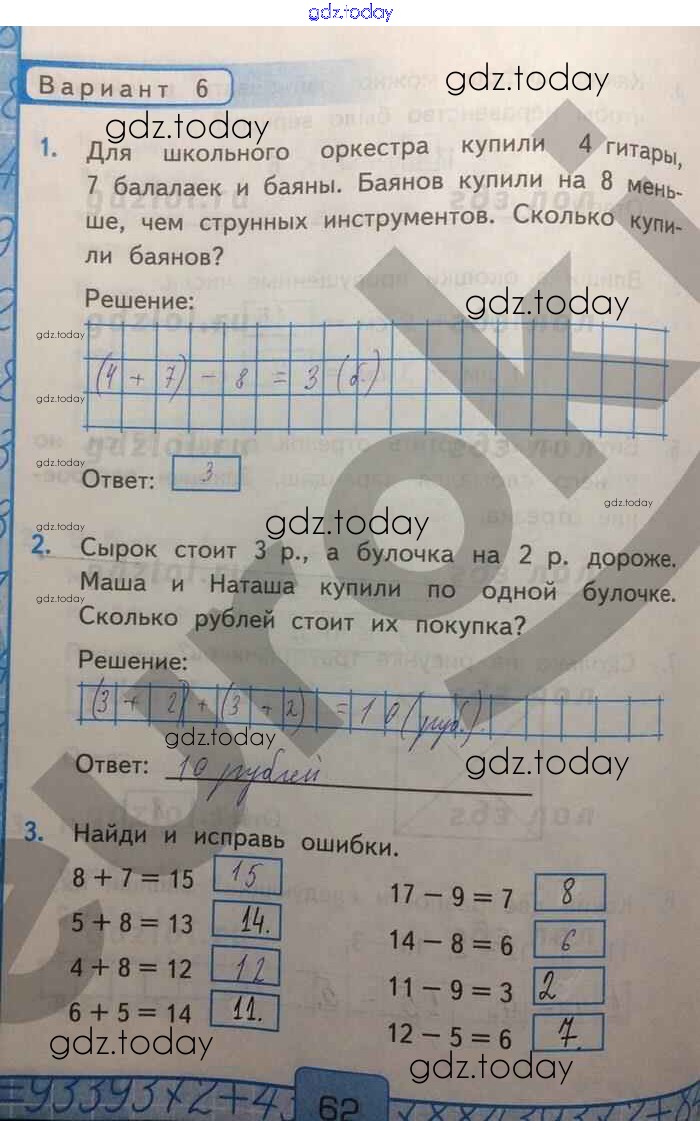 gdz.today
Вариант 6
gdz.today
gdz.today
1. Для школьного оркестра купили 4 гитары,
7 балалаек и баяны. Баянов купили на 8 мень-
ше, чем струнных инструментов. Сколько купи-
ли баянов?
Решение:
gdz.today
gdz.today
(4 + 7) - 8 = 3 (б.)
gdz.today
gdz.today
Ответ: 3
gdz.today
gdz.today
gdz.today
2. Сырок стоит 3 р., а булочка на 2 р. дороже.
Маша и Наташа купили по одной булочке.
gdz.today
Сколько рублей стоит их покупка?
Решение:
(3 + 2) + (3 + 2) = 10 (руб.)
gdz.today
Ответ: 10 рублей
gdz.today
3. Найди и исправь ошибки.
8 + 7 = 15 15
17 − 9 = 7 8
5 + 8 = 13 14.
14 − 8 = 6 6
4 + 8 = 12 12
11 − 9 = 3 2
6 + 5 = 14 11.
12 − 5 = 6 7.
gdz.today
gdz.today
62